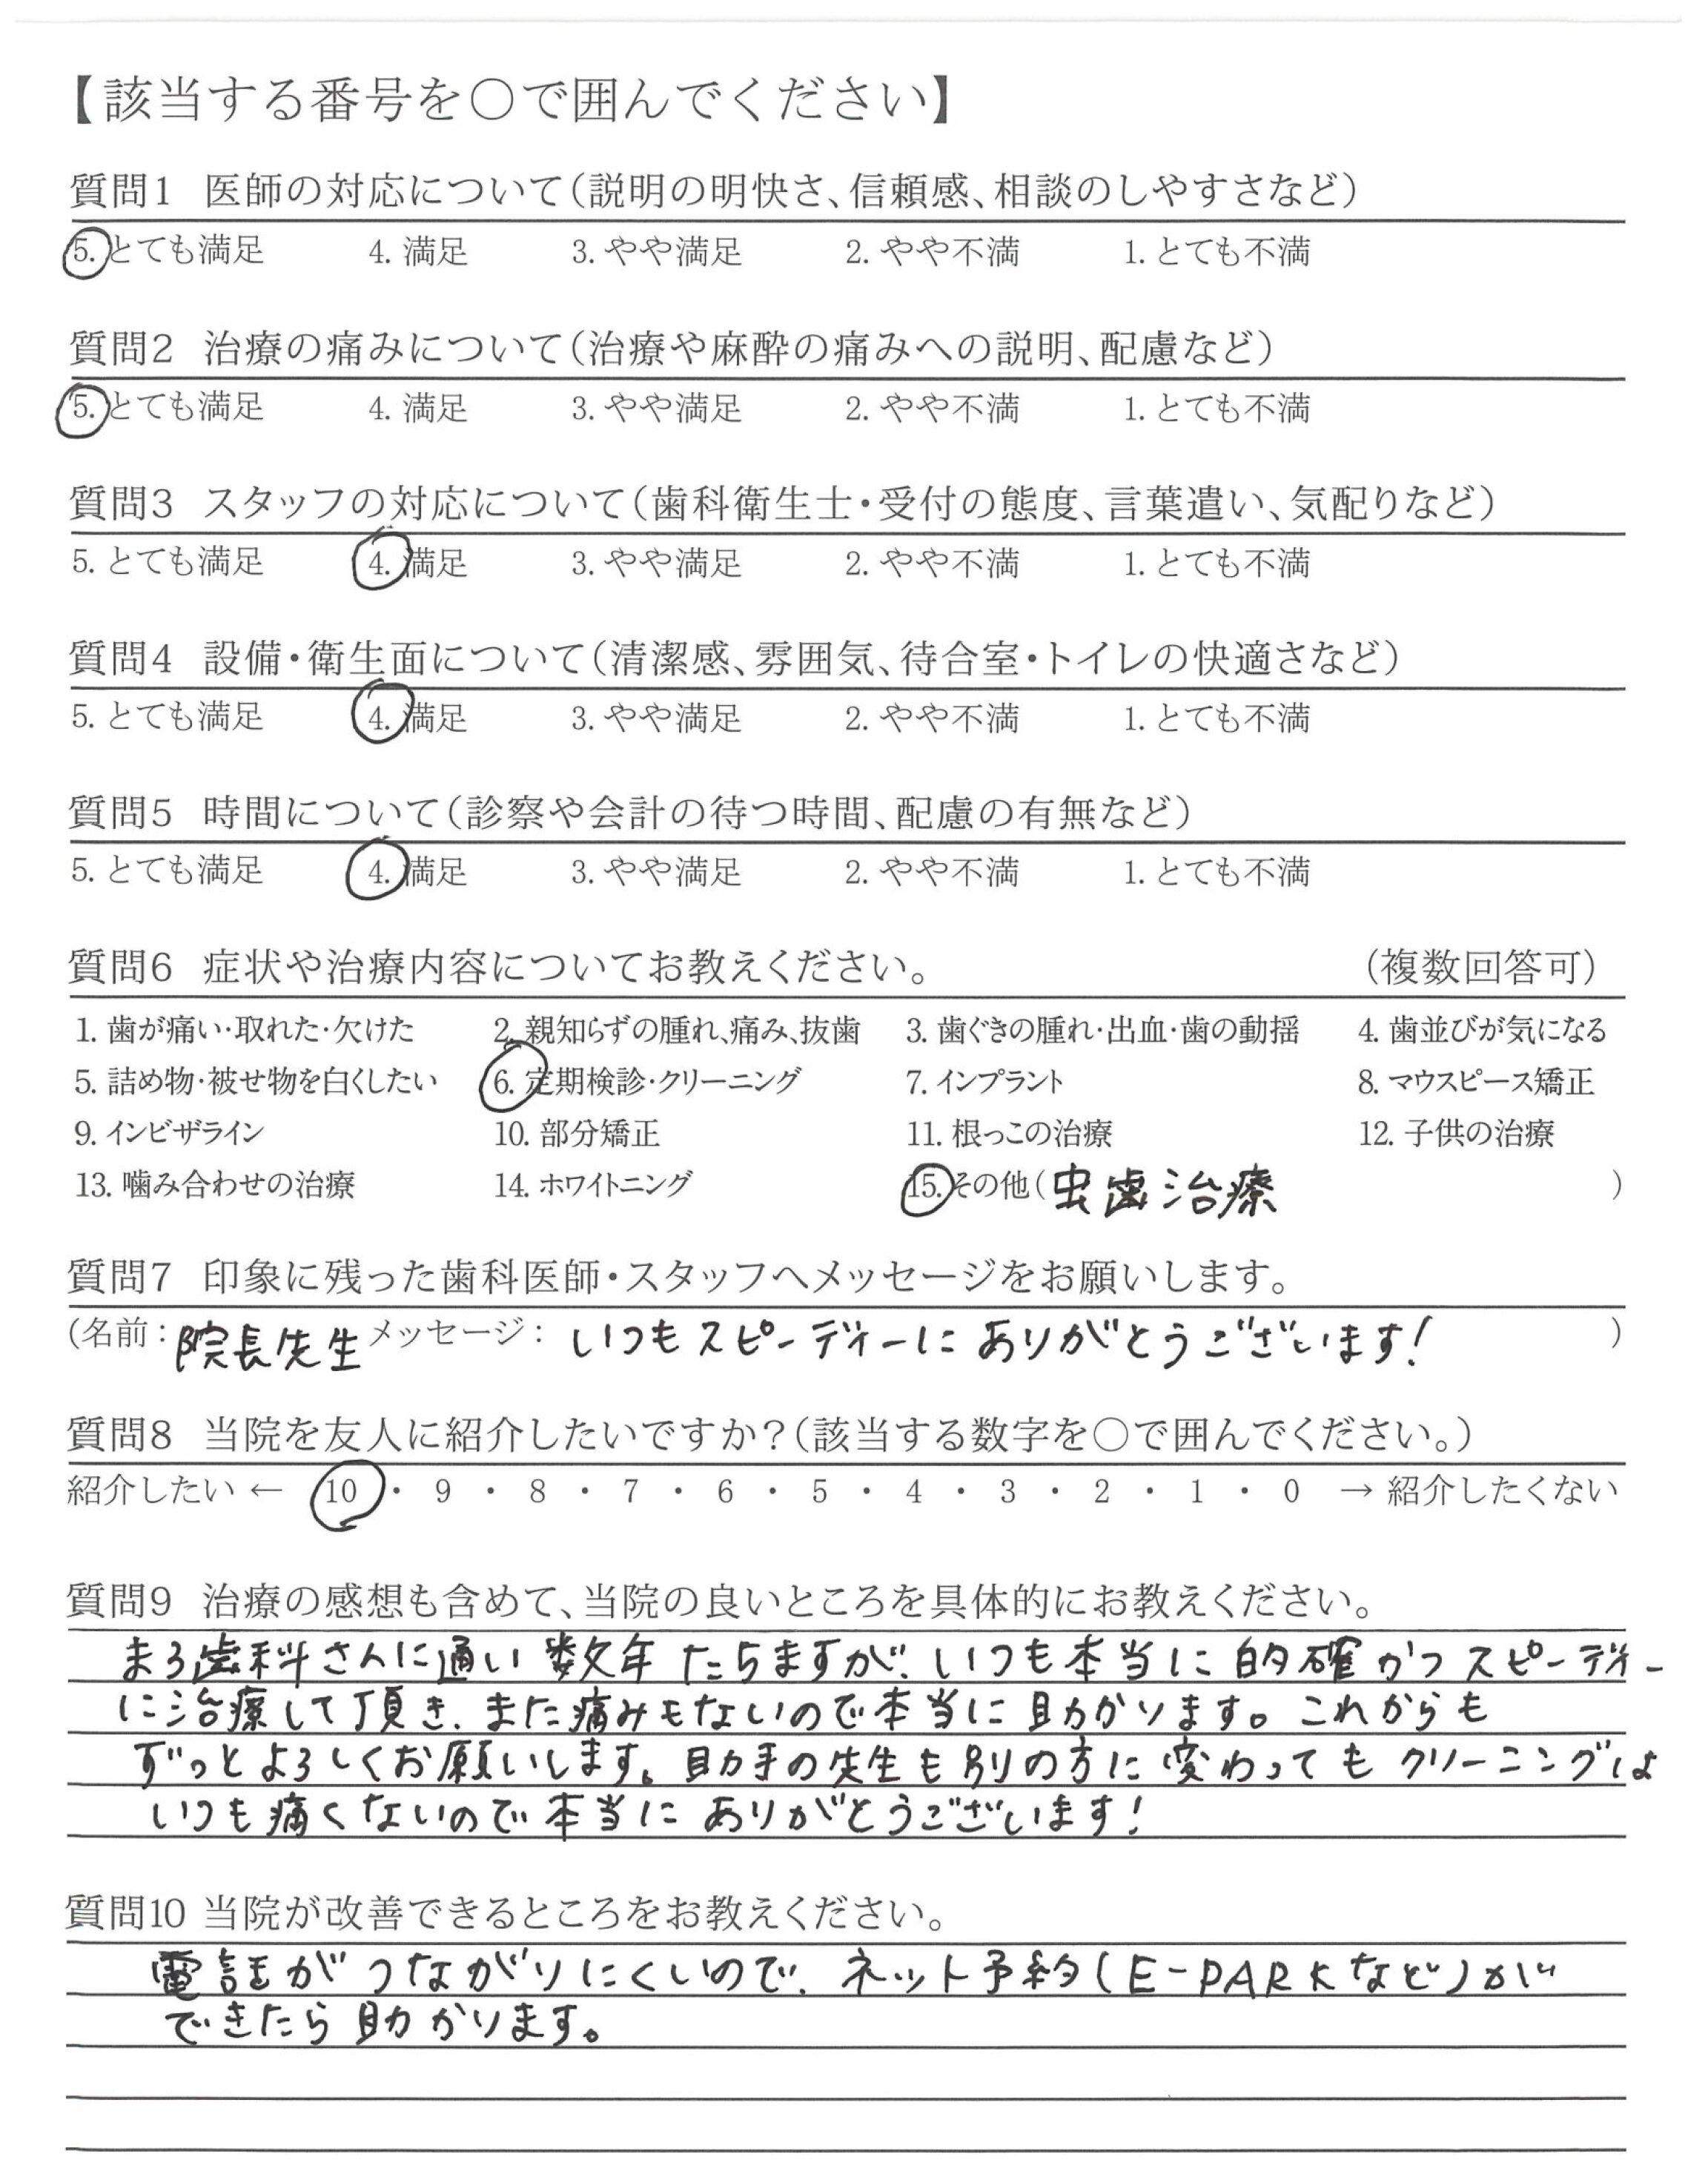 【該当する番号を○で囲んでください】
質問1 医師の対応について(説明の明快さ、信頼感、相談のしやすさなど)
5. とても満足 4. 満足 3. やや満足 2. やや不満 1. とても不満
質問2 治療の痛みについて(治療や麻酔の痛みへの説明、配慮など)
5. とても満足 4. 満足 3. やや満足 2. やや不満 1. とても不満
質問3 スタッフの対応について(歯科衛生士・受付の態度、言葉遣い、気配りなど)
5. とても満足 4. 満足 3. やや満足 2. やや不満 1. とても不満
質問4 設備・衛生面について(清潔感、雰囲気、待合室・トイレの快適さなど)
5. とても満足 4. 満足 3. やや満足 2. やや不満 1. とても不満
質問5 時間について(診察や会計の待つ時間、配慮の有無など)
5. とても満足 4. 満足 3. やや満足 2. やや不満 1. とても不満
質問6 症状や治療内容についてお教えください。 (複数回答可)
1. 歯が痛い・取れた・欠けた 2. 親知らずの腫れ、痛み、抜歯 3. 歯ぐきの腫れ・出血・歯の動揺 4. 歯並びが気になる
5. 詰め物・被せ物を白くしたい 6. 定期検診・クリーニング 7. インプラント 8. マウスピース矯正
9. インビザライン 10. 部分矯正 11. 根っこの治療 12. 子供の治療
13. 噛み合わせの治療 14. ホワイトニング 15. その他(虫歯治療 )
質問7 印象に残った歯科医師・スタッフへメッセージをお願いします。
(名前:院長先生 メッセージ: いつもスピーディーにありがとうございます! )
質問8 当院を友人に紹介したいですか?(該当する数字を○で囲んでください。)
紹介したい ← 10 ・ 9 ・ 8 ・ 7 ・ 6 ・ 5 ・ 4 ・ 3 ・ 2 ・ 1 ・ 0 → 紹介したくない
質問9 治療の感想も含めて、当院の良いところを具体的にお教えください。
まろ歯科さんに通い数年たちますが、いつも本当に的確かつスピーディー
に治療して頂き、また痛みもないので本当に助かります。これからも
ずっとよろしくお願いします。助手の先生も別の方に変わってもクリーニングは
いつも痛くないので本当にありがとうございます!
質問10 当院が改善できるところをお教えください。
電話がつながりにくいので、ネット予約(E-PARKなど)が
できたら助かります。